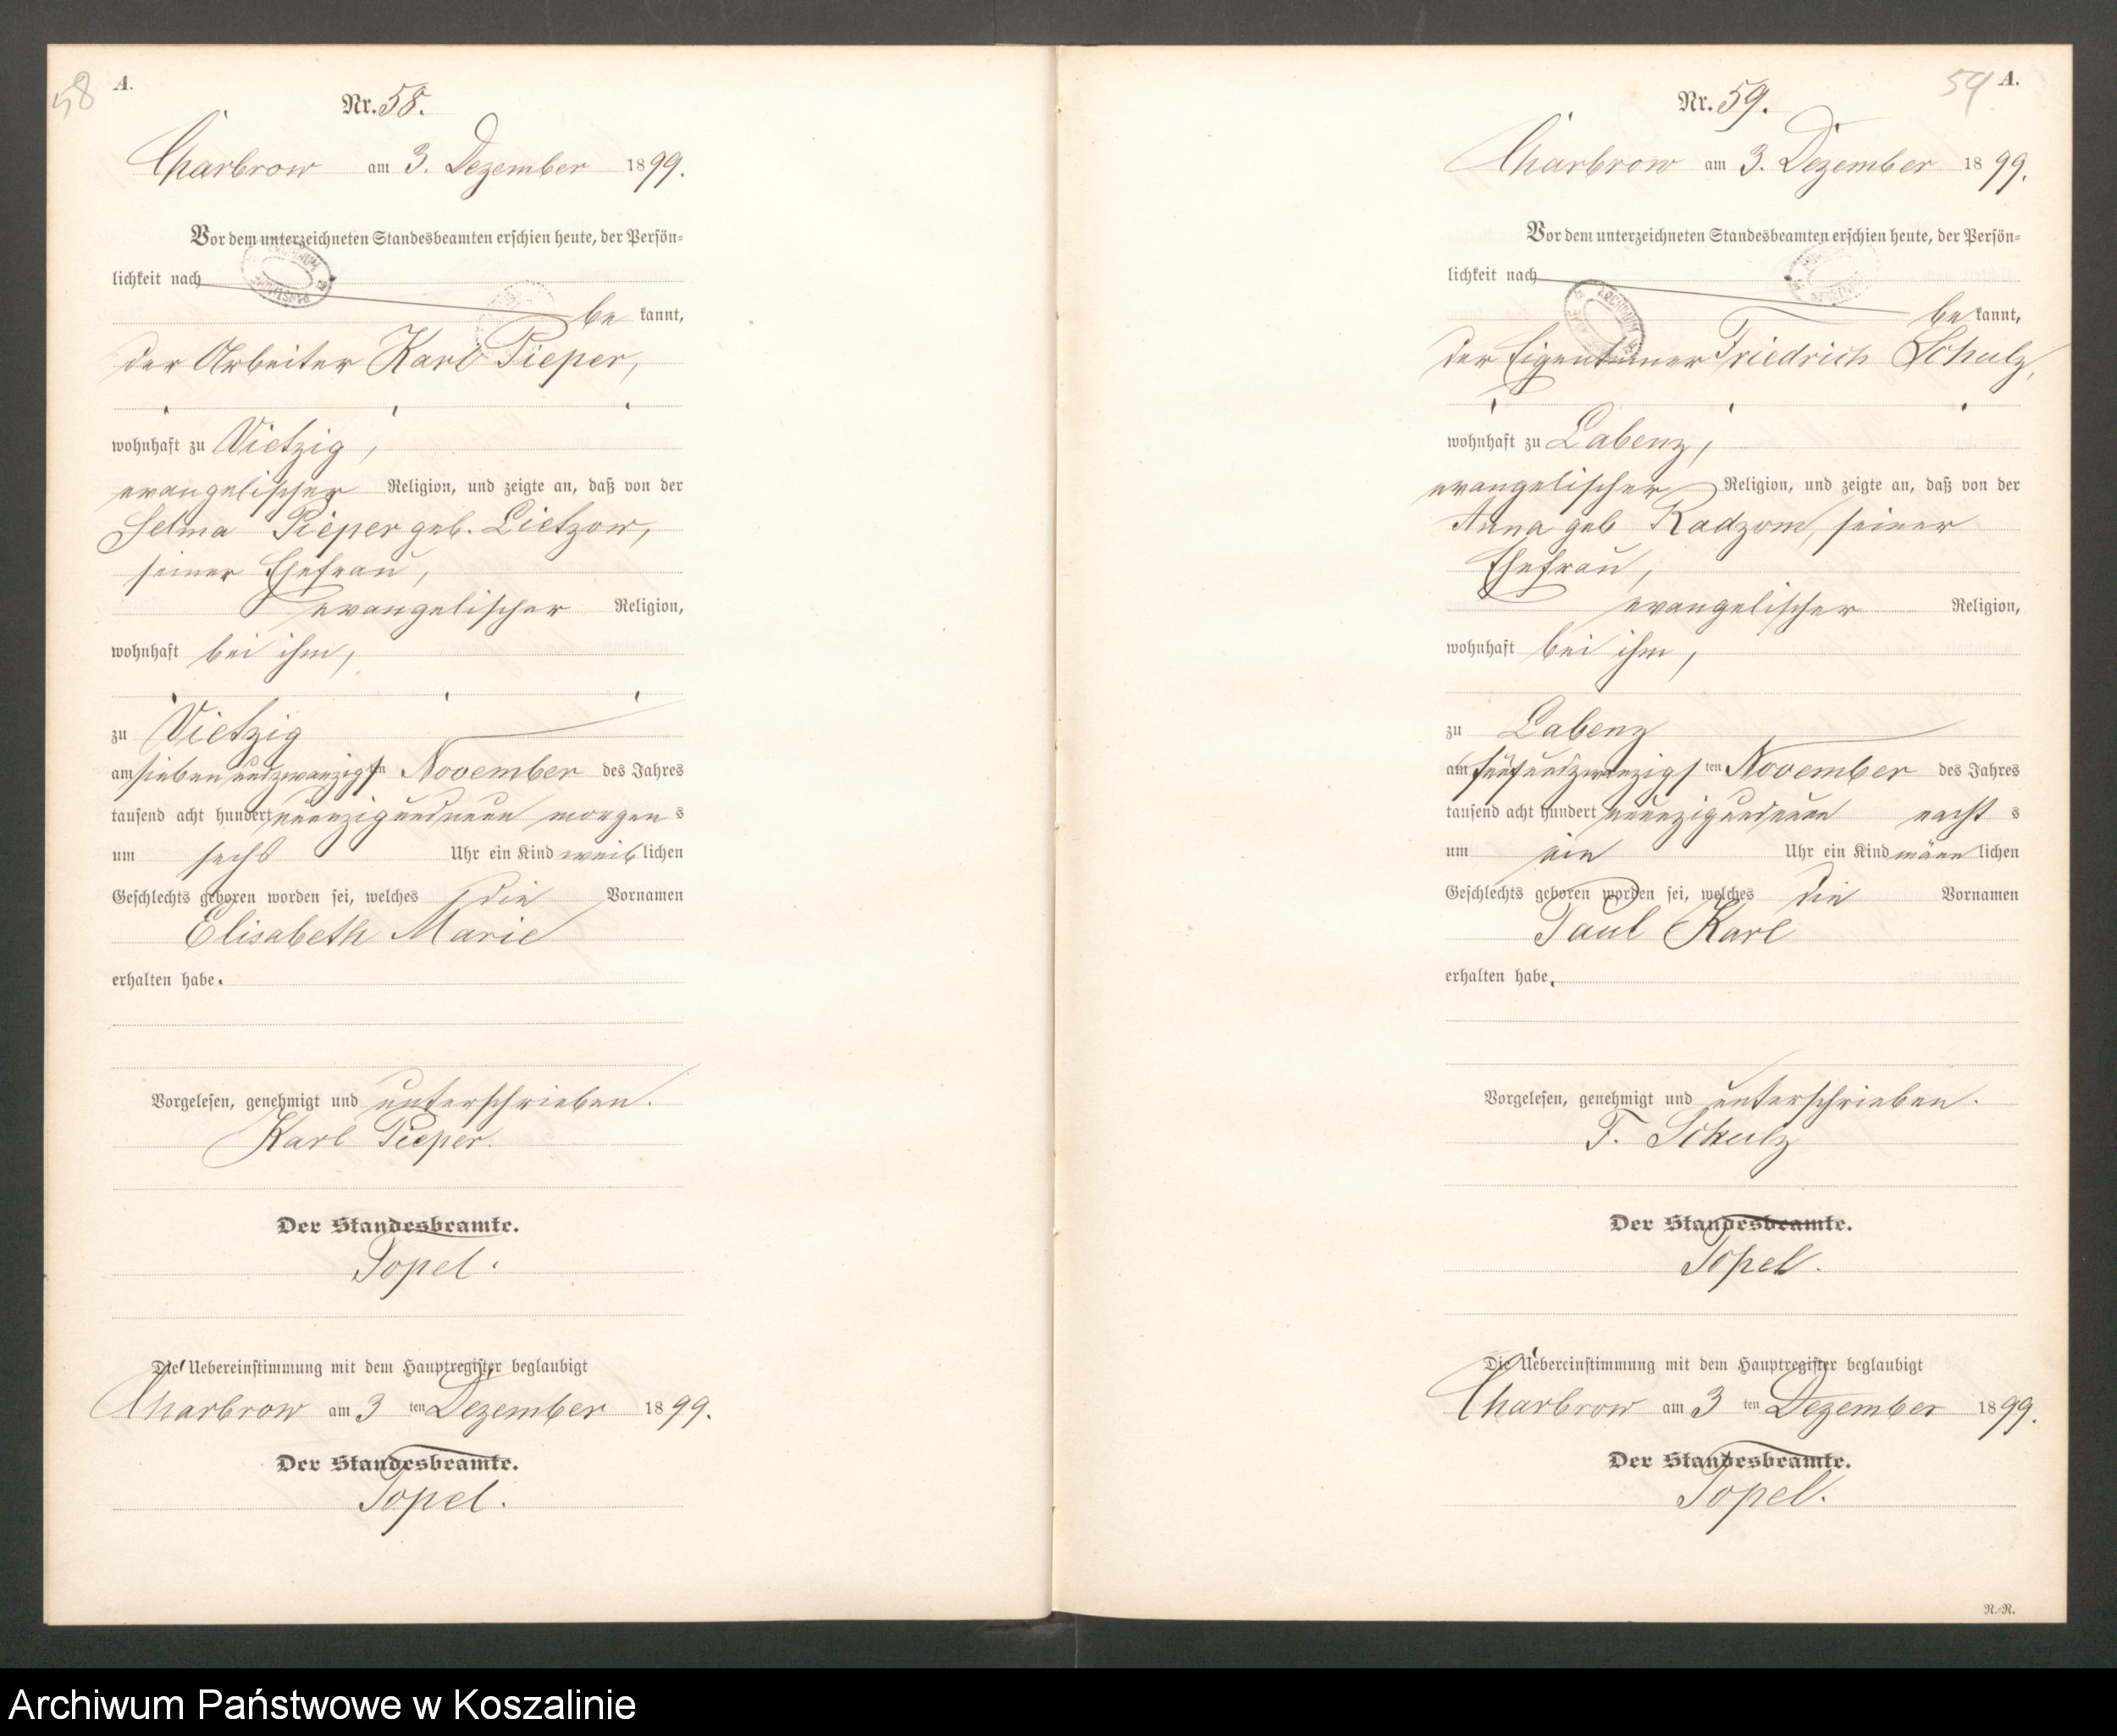 58
A.
Nr. 58.
Charbrow am 3. Dezember 1899.
Vor dem unterzeichneten Standesbeamten erschien heute, der Persön=
lichkeit nach
be kannt,
der Arbeiter Karl Pieper,
wohnhaft zu Vietzig,
evangelischer Religion, und zeigte an, daß von der
Selma Pieper geb. Lietzow,
seiner Ehefrau,
evangelischer Religion,
wohnhaft bei ihm,
zu Vietzig
am siebenundzwanzigsten November des Jahres
tausend acht hundert neunzigundneun morgens
um sechs Uhr ein Kind weiblichen
Geschlechts geboren worden sei, welches die Vornamen
Elisabeth Marie
erhalten habe.
Vorgelesen, genehmigt und unterschrieben.
Karl Pieper.
Der Standesbeamte.
Topel.
Die Uebereinstimmung mit dem Hauptregister beglaubigt
Charbrow am 3 ten Dezember 1899.
Der Standesbeamte.
Topel.
59
A.
Nr. 59.
Charbrow am 3. Dezember 1899.
Vor dem unterzeichneten Standesbeamten erschien heute, der Persön=
lichkeit nach
be kannt,
der Eigentümer Friedrich Schulz,
wohnhaft zu Labenz,
evangelischer Religion, und zeigte an, daß von der
Anna geb Radzom, seiner
Ehefrau,
evangelischer Religion,
wohnhaft bei ihm,
zu Labenz
am fünfundzwanzigsten November des Jahres
tausend acht hundert neunzigundneun nachts
um ein Uhr ein Kind männlichen
Geschlechts geboren worden sei, welches die Vornamen
Paul Karl
erhalten habe.
Vorgelesen, genehmigt und unterschrieben.
F. Schulz
Der Standesbeamte.
Topel.
Die Uebereinstimmung mit dem Hauptregister beglaubigt
Charbrow am 3 ten Dezember 1899.
Der Standesbeamte.
Topel.
R.=R.
Archiwum Państwowe w Koszalinie